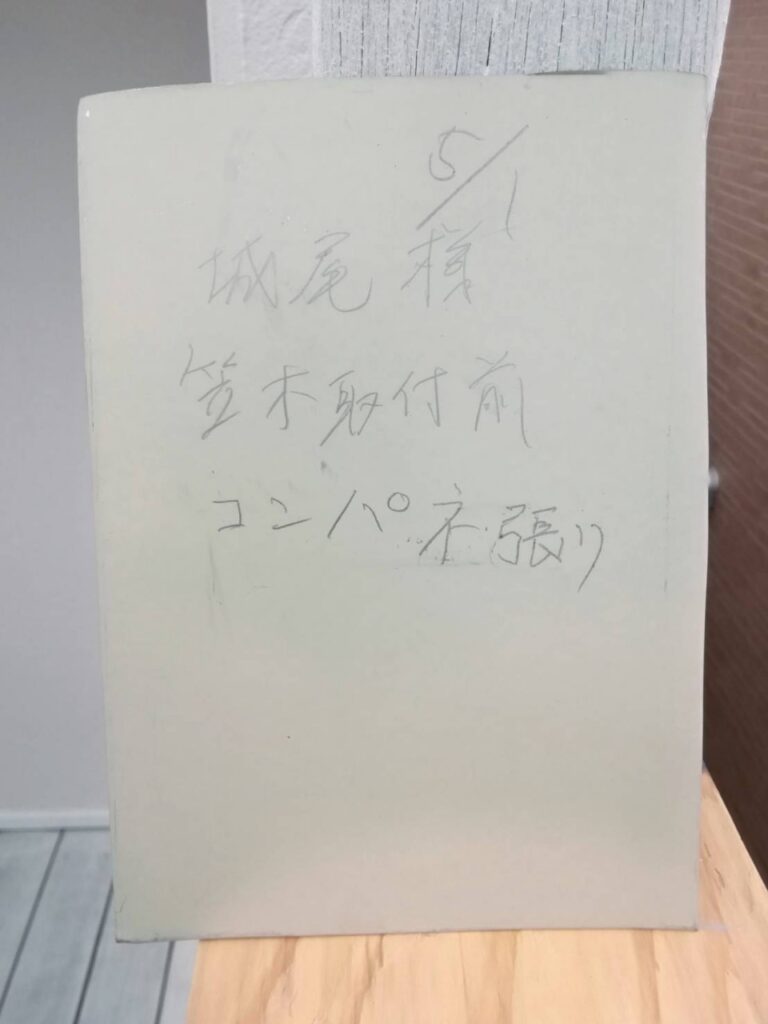 5/1
城尾様
笠木取付前
コンパネ張り